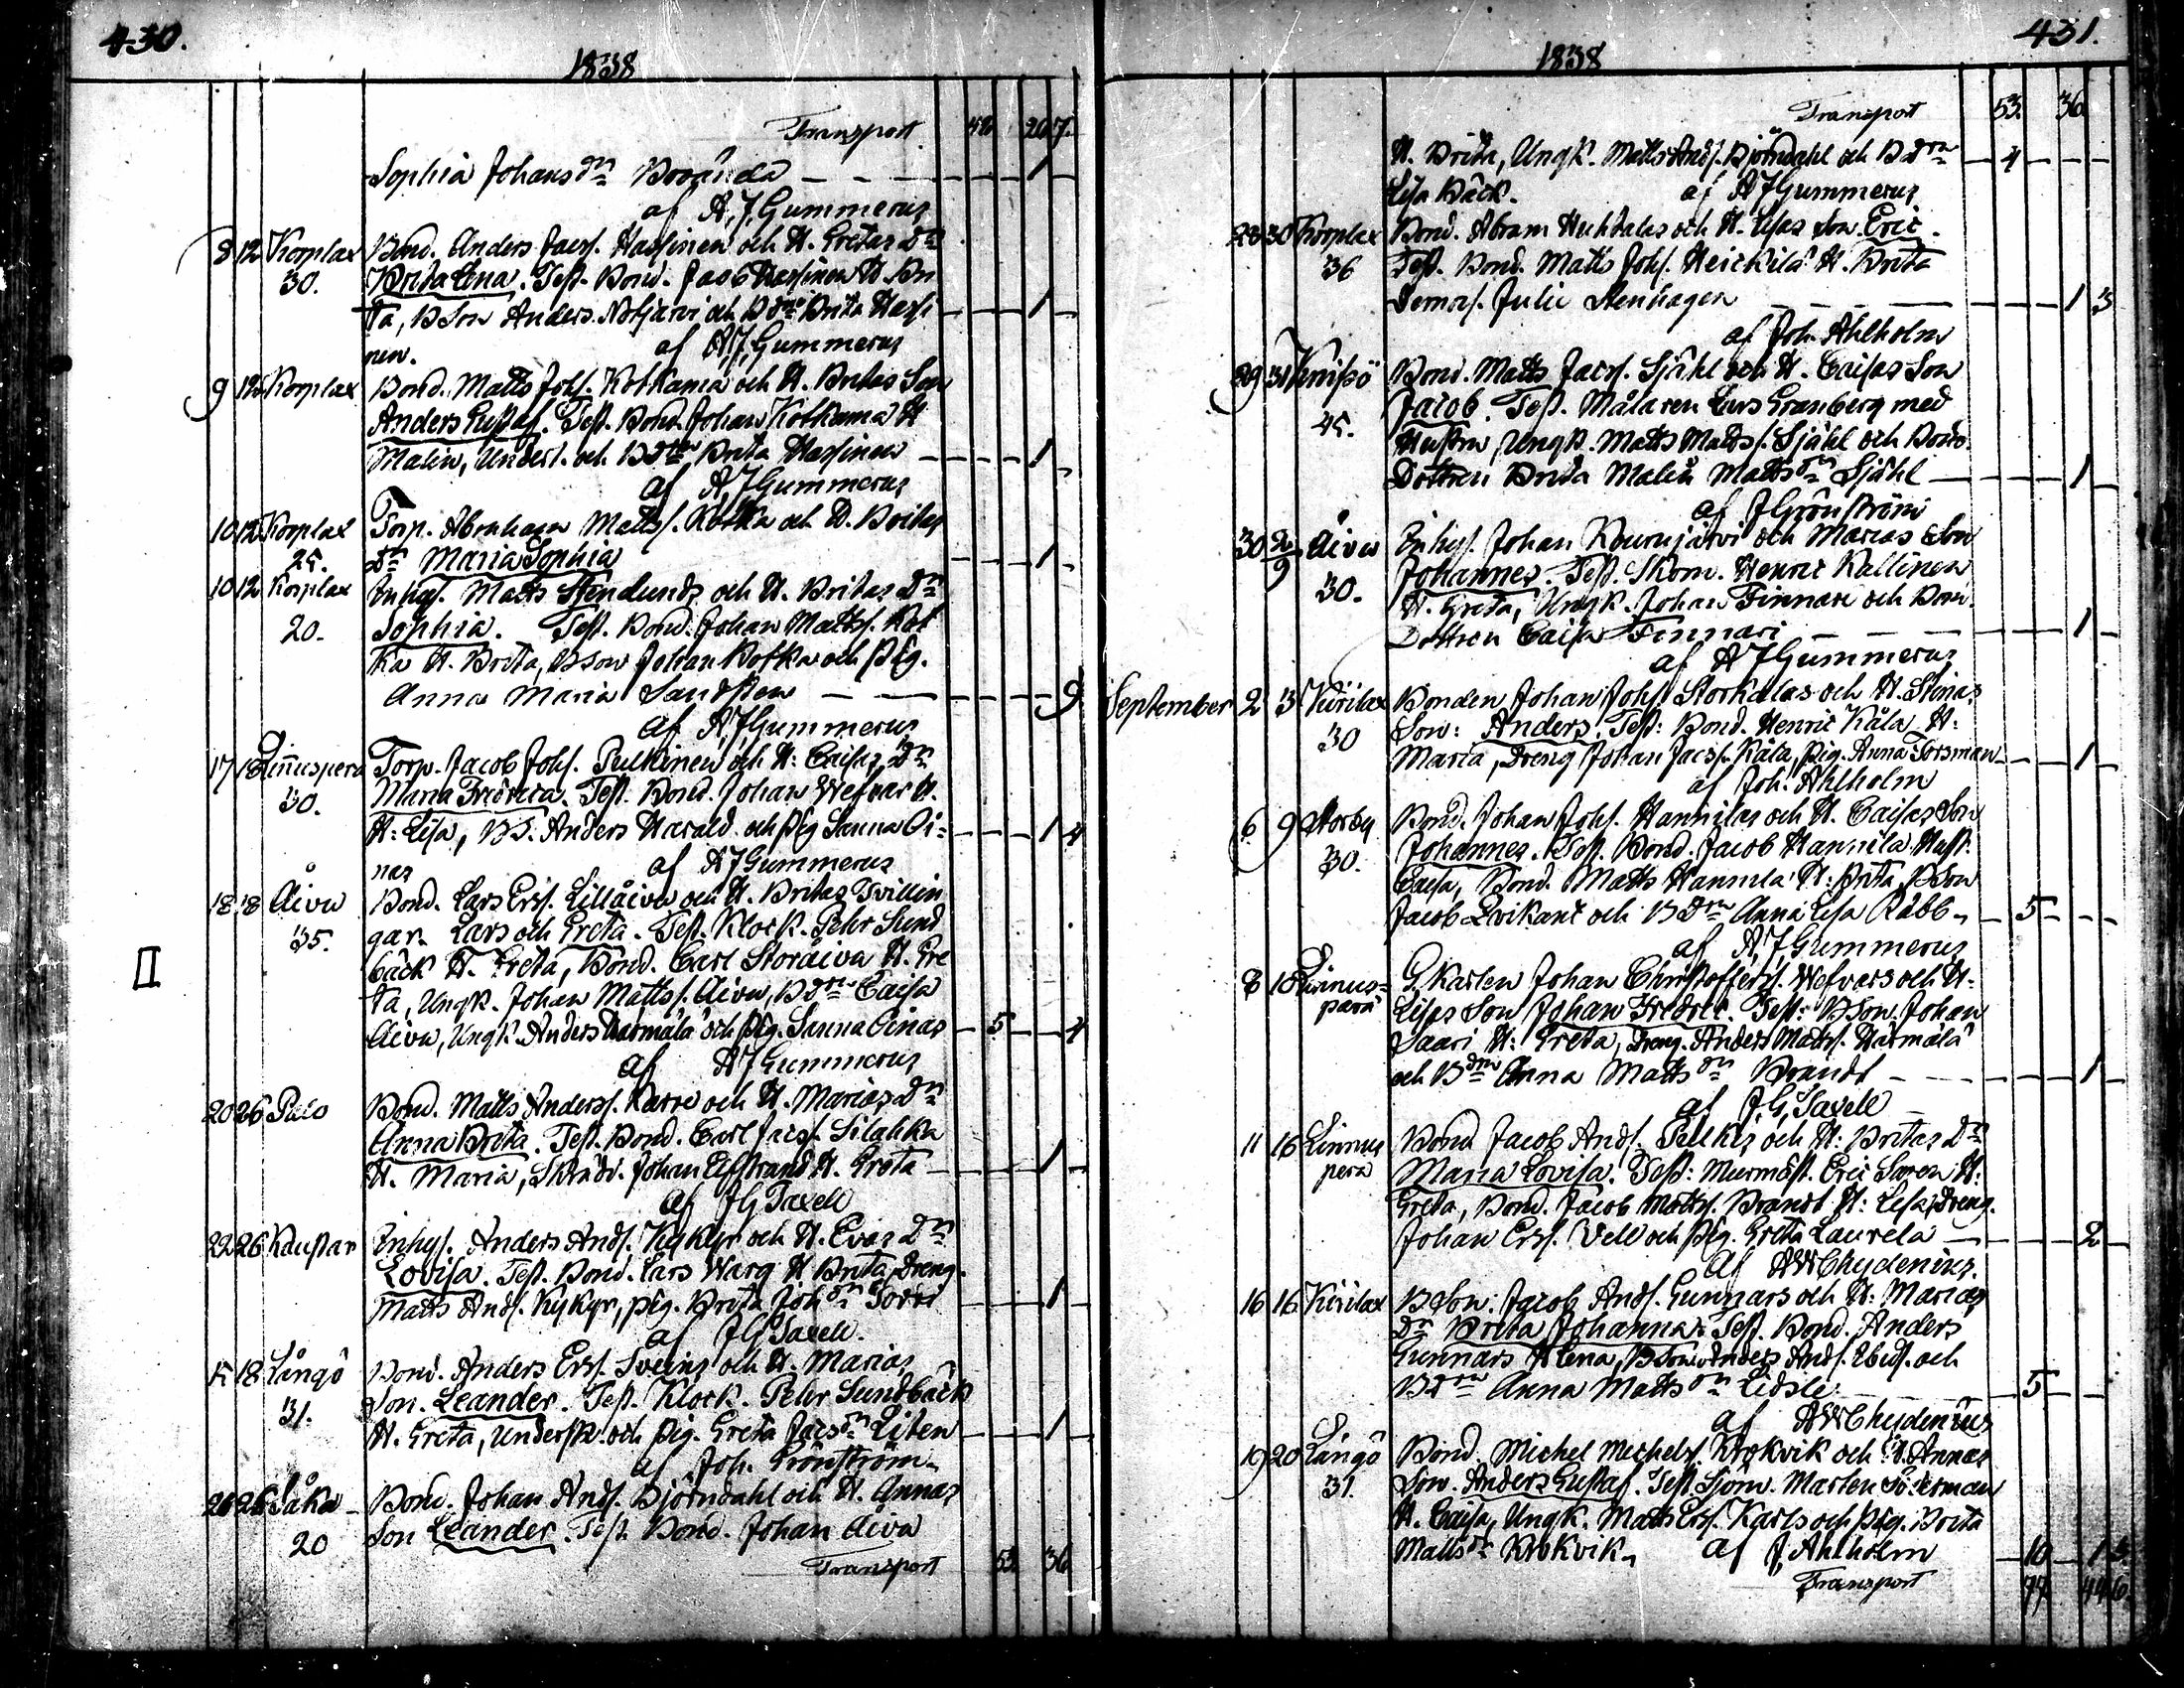 430.
1838
Transport. 48 20 7.
Sophia Johansdn Borända — — — 1 —
af A. J. Gummerus
8 12 Korplax Bond. Anders Jacs. Hassinen och H. Gretas Dn
30. Brita Lena. Test. Bond. Jacob Hassinen H. Bri
ta, BSon Anders Noljärvi och BDrn Brita Hassi — 1 —
nen. af A. J. Gummerus
9 12 Korplax Bond. Matts Johs. Kotkama och H. Britas Son
Anders Gustaf. Test. Bond. Johan Kotkama H.
Malin, Underl. och BDrn Brita Hassinen — 1 —
af A. J. Gummerus
10 12 Korplax Torp. Abraham Mattss. Kotka och H. Britas
25. Dn Maria Sophia — 1 —
10 12 Korplax Inhys. Matts Stenlunds och H. Britas Dn
20. Sophia. Test. Bond. Johan Mattss. Kot
ka H. Brita, BSon Johan Kotka och Pig.
Anna Maria Sandsten — — — 9
af A J Gummerus
17 18 Linnuspera Torp. Jacob Johs. Pulkinen och H. Caisas Dn
30. Maria Fredrica. Test. Bond. Johan Wefvar H.
H: Lisa, BS. Anders Harald och Pig Sanna Oi- — 1 4
nas af A J Gummerus
18 18 Åivo Bond. Lars Ers. Lillåivo och H. Britas Tvillin
35. gar Lars och Greta. Test. Klock. Pehr Sund
bäck H. Greta, Bond. Carl Storåivo H. Gre
II ta, Ungk. Johan Mattss. Åivo, BDrn Caisa
Åivo, Ungk. Anders Härmälä och Pig. Sanna Oinas — 5 — 4
af A J Gummerus
20 26 Palo Bond. Matts Anderss. Karre och H. Marias Dn
Anna Brita. Test. Bond. Carl Jacs. Silahka
H. Maria, Skräd. Johan Elfstrand H. Greta — 1 —
af J G Taxell
22 26 Kaustar Inhys. Anders Ands. Kykyr och H. Evas Dn
Lovisa. Test. Bond. Lars Warg H Brita, Dreng.
Matts Ands. Kykyr, Pig. Brita Johdn Torri — 1 —
af J G Taxell.
15 18 Långö Bond. Anders Ers. Sveins och H. Marias
31. Son. Leander. Test. Klock. Pehr Sundbäck
H. Greta, Underst. och Pig. Greta Jacsdn Liten — 1 —
af Joh. Grönström.
26 26 Såka Bond. Johan Ands. Björndahl och H. Annas
20 Son Leander. Test. Bond. Johan Åivo
Transport 53. 36
431.
1838
Transport 53. 36
H. Brita, Ungk. Matts Ands. Björndahl och BDrn — 4 —
Lisa Bäck. af A J Gummerus
23 30 Korplax Bond. Abram Huhtalas och H. Lisas Son Eric.
36 Test. Bond. Matts Johs. Heickilä H. Brita
Demois. Julie Stenhagen — 1 3
af Joh. Ahlholm
29 31 Knifsö Bond. Matts Jacs. Sjähl och H. Caisas Son
45. Jacob. Test. Målaren Lars Granberg med
Hustru, Ungk. Matts Mattss. Sjähl och Bond.
Dottren Brita Malin Mattsdn Sjähl — 1 —
af J Grönström
30 2/9 Åivo Inhys. Johan Kournjärvi och Marias Son
30. Johannes. Test. Skom. Henric Kallinen
H. Greta, Ungk. Johan Finnare och Bon.
Dottren Caisa Finnari — 1 —
af A J Gummerus
September 2 3 Kirilax Bonden Johan Johs. Storkalas och H. Stinas
30 Son: Anders. Test: Bond. Henric Kåla H:
Maria, Dreng Johan Jacs. Kåla, Pig. Anna Forsman — 1 —
af Joh. Ahlholm
6 9 Storby Bond. Johan Johs. Hannilas och H. Caisas Son
30. Johannes. Test. Bond. Jacob Hannila Hust.
Caisa, Bond. Matts Hannila H: Brita, BSon
Jacob Lvikant och BDrn Anna Lisa Rabb — 5 —
af A J Gummerus
8 10 Linnus- G. Karlen Johan Christoffers. Wefvars och H.
perä Lisas Son Johan Fredric. Test: BSon. Johan
Saari H: Greta, Dreng. Anders Mattss. Härmälä
och BDrn Anna Mattsdn Brandt — 1 —
af J. G. Taxell
11 16 Linnus Bond Jacob Ands. Pulkis och H: Britas Dn
pera Maria Lovisa. Test: Murmäst. Eric Soren H:
Greta, Bond. Jacob Mattss. Brandt H: Lisa, Dreng.
Johan Ers. Vell och Pig. Greta Laurela — 2 —
af A W Chydenius.
16 16 Kirilax BSon: Jacob Ands. Gunnars och H: Marias
Dn Brita Johanna. Test. Bond. Anders
Gunnars H Lena, BSon Anders Ands. och
BDrn Anna Mattsdn Lidsle — 5 —
af A W Chydenius
19 20 Långö Bond. Michel Michels. Krokvik och H. Annas
31. Son. Anders Gustaf. Test. Sjöm. Marten Söderman
H. Caisa, Ungk. Matts Ers. Karls och Pig. Brita
Mattsdn Krokvik. af J. Ahlholm — 10 — 1 3.
Transport 77. 44 6.